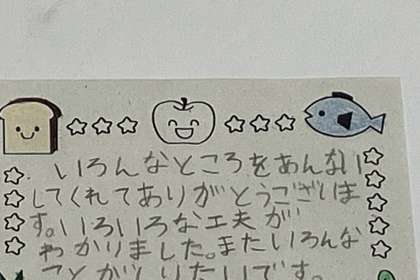 いろんなところをあんない
してくれてありがとうございま
す。いろいろな工夫が
わかりました。またいろんな
ことがしりたいです。